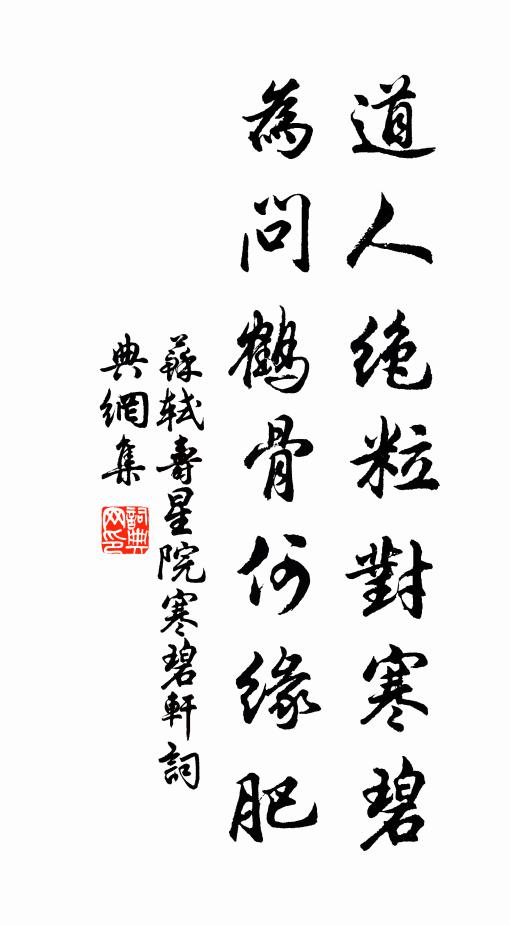 道人絶粒對寒碧
為問鶴骨何緣肥
蘇軾壽星院寒碧軒詞
典網集
詞典網印